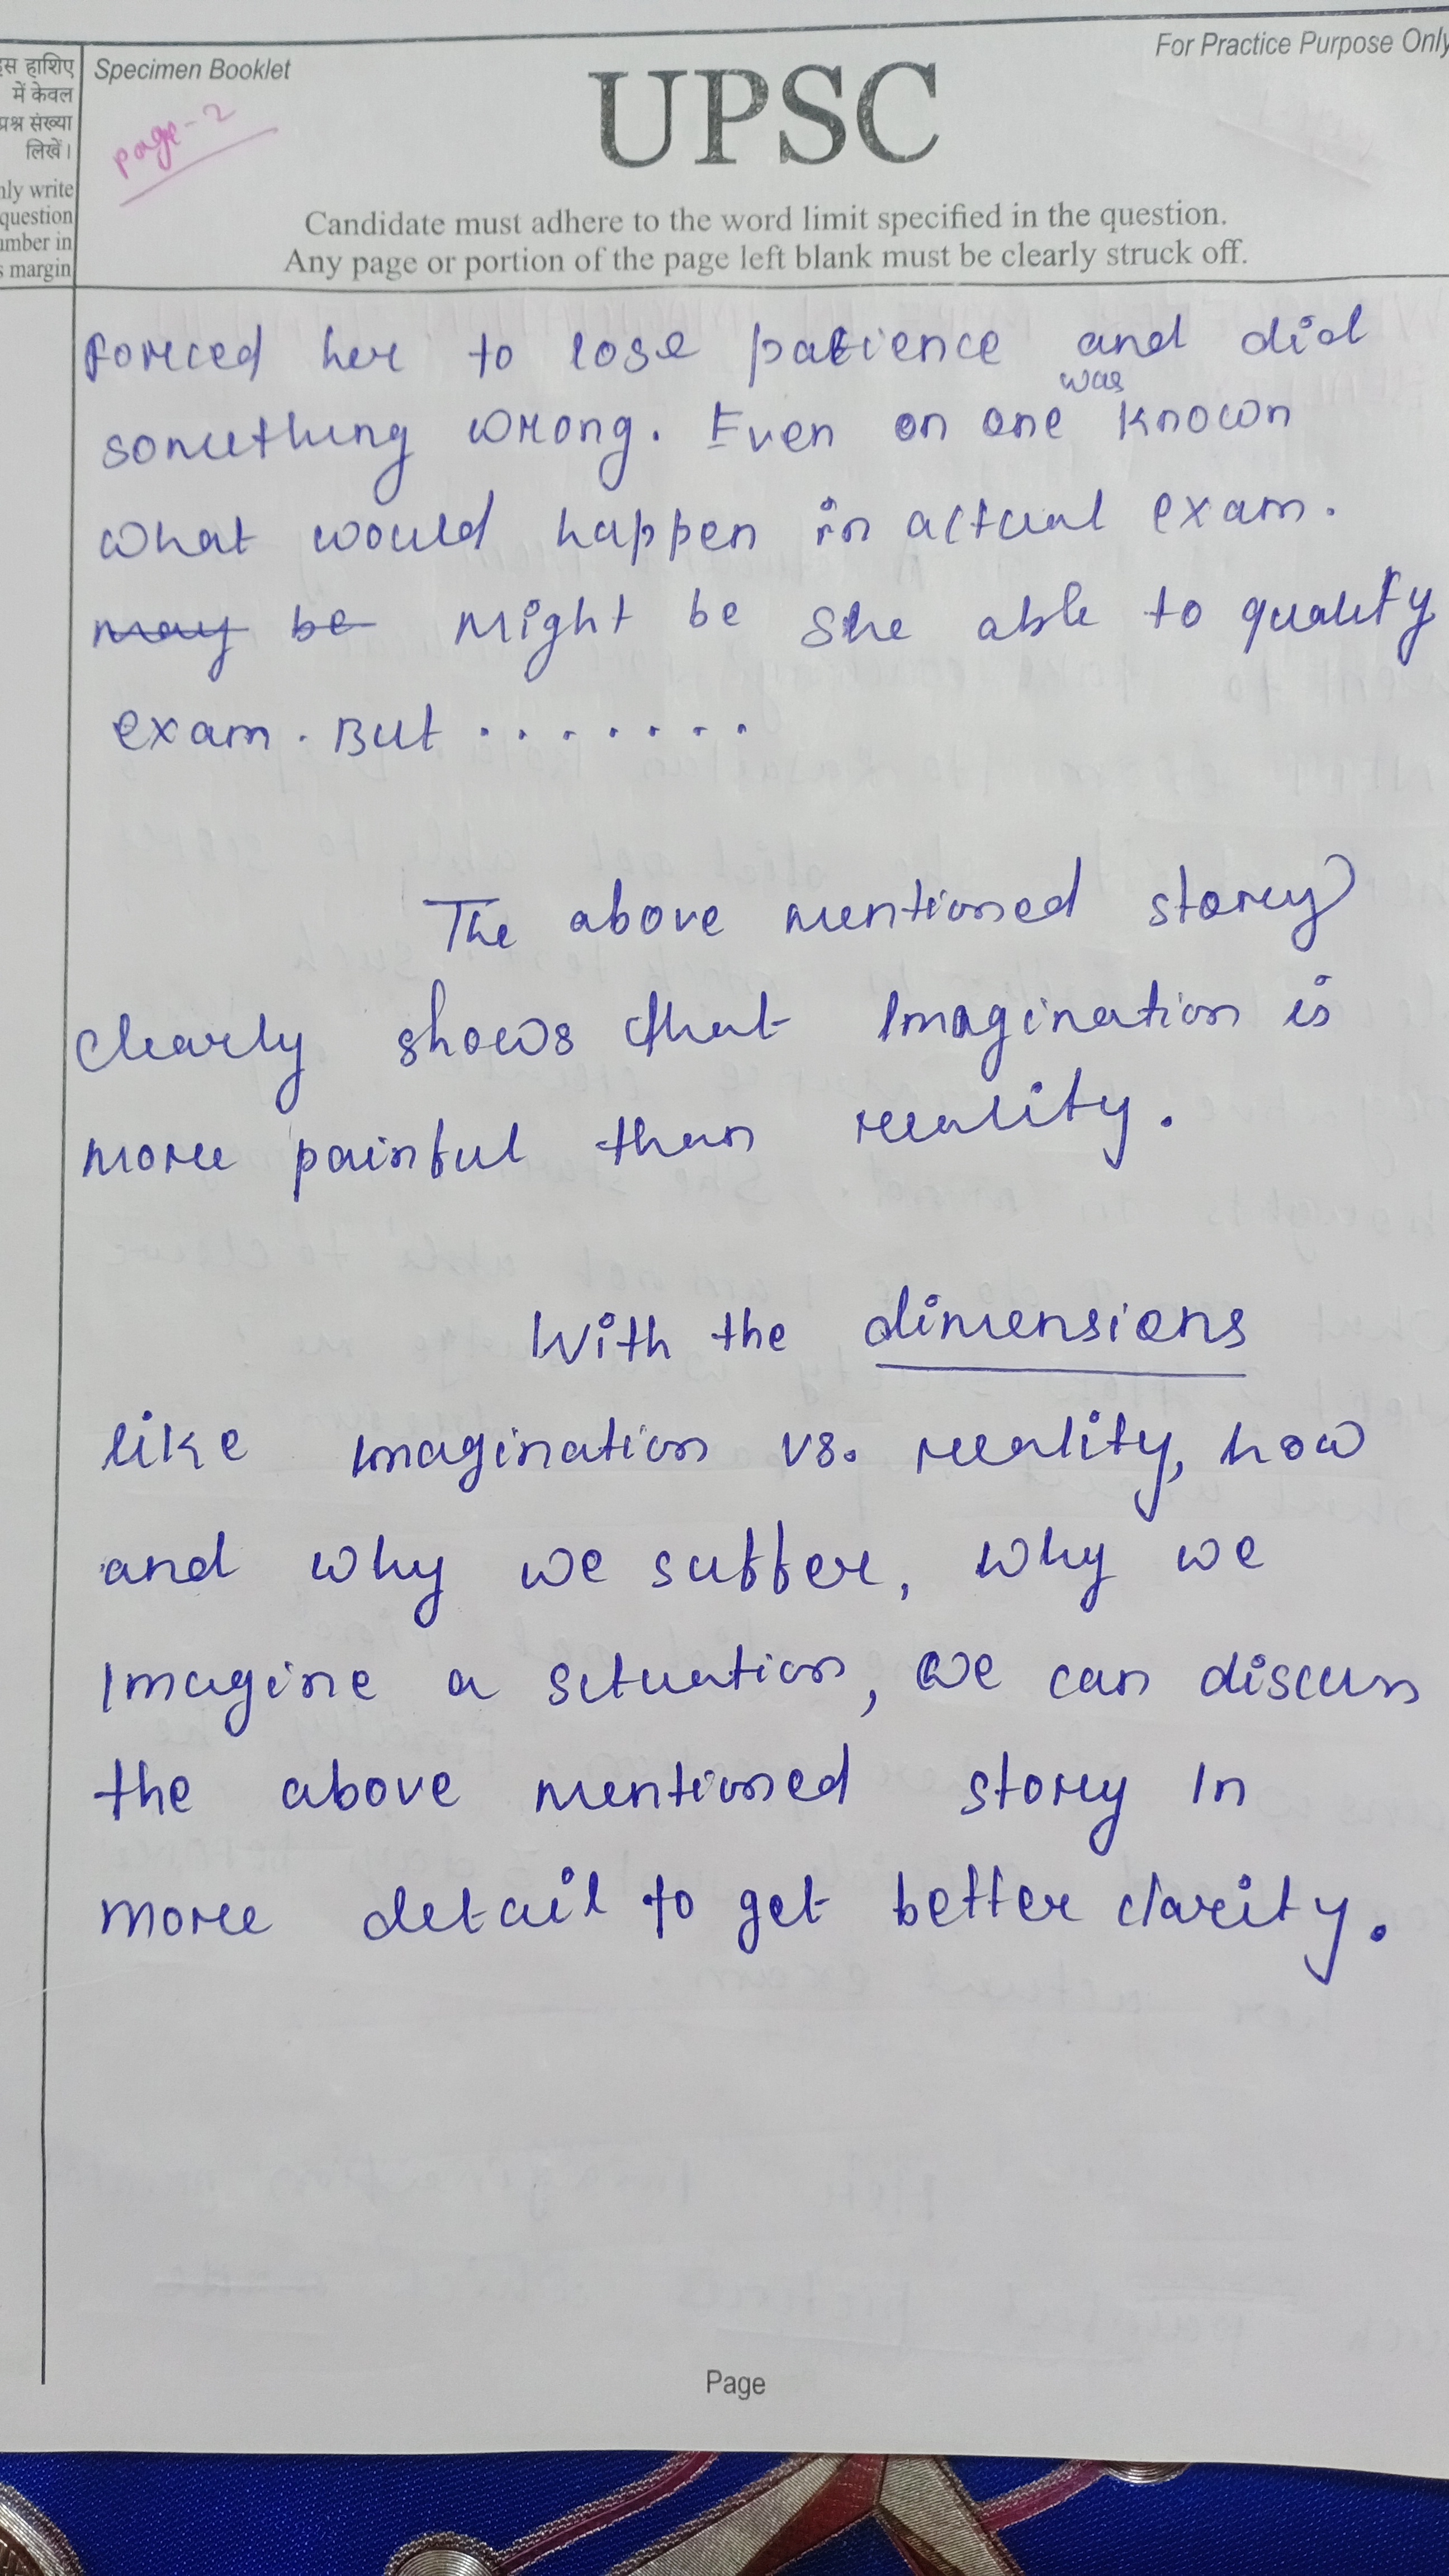 इस हाशिए
में केवल
प्रश्न संख्या
लिखें।
nly write
question
umber in
s margin
Specimen Booklet
page-2
UPSC
For Practice Purpose Only
Candidate must adhere to the word limit specified in the question.
Any page or portion of the page left blank must be clearly struck off.
forced her to lose patience and did
was
something wrong. Even on one known
what would happen in actual exam.
may be might be she able to qualify
exam. But .......
The above mentioned story
clearly shows that Imagination is
more painful than reality.
With the dimensions
like imagination vs. reality, how
and why we suffer, why we
Imagine a situation, we can discuss
the above mentioned story In
more detail to get better clarity.
Page